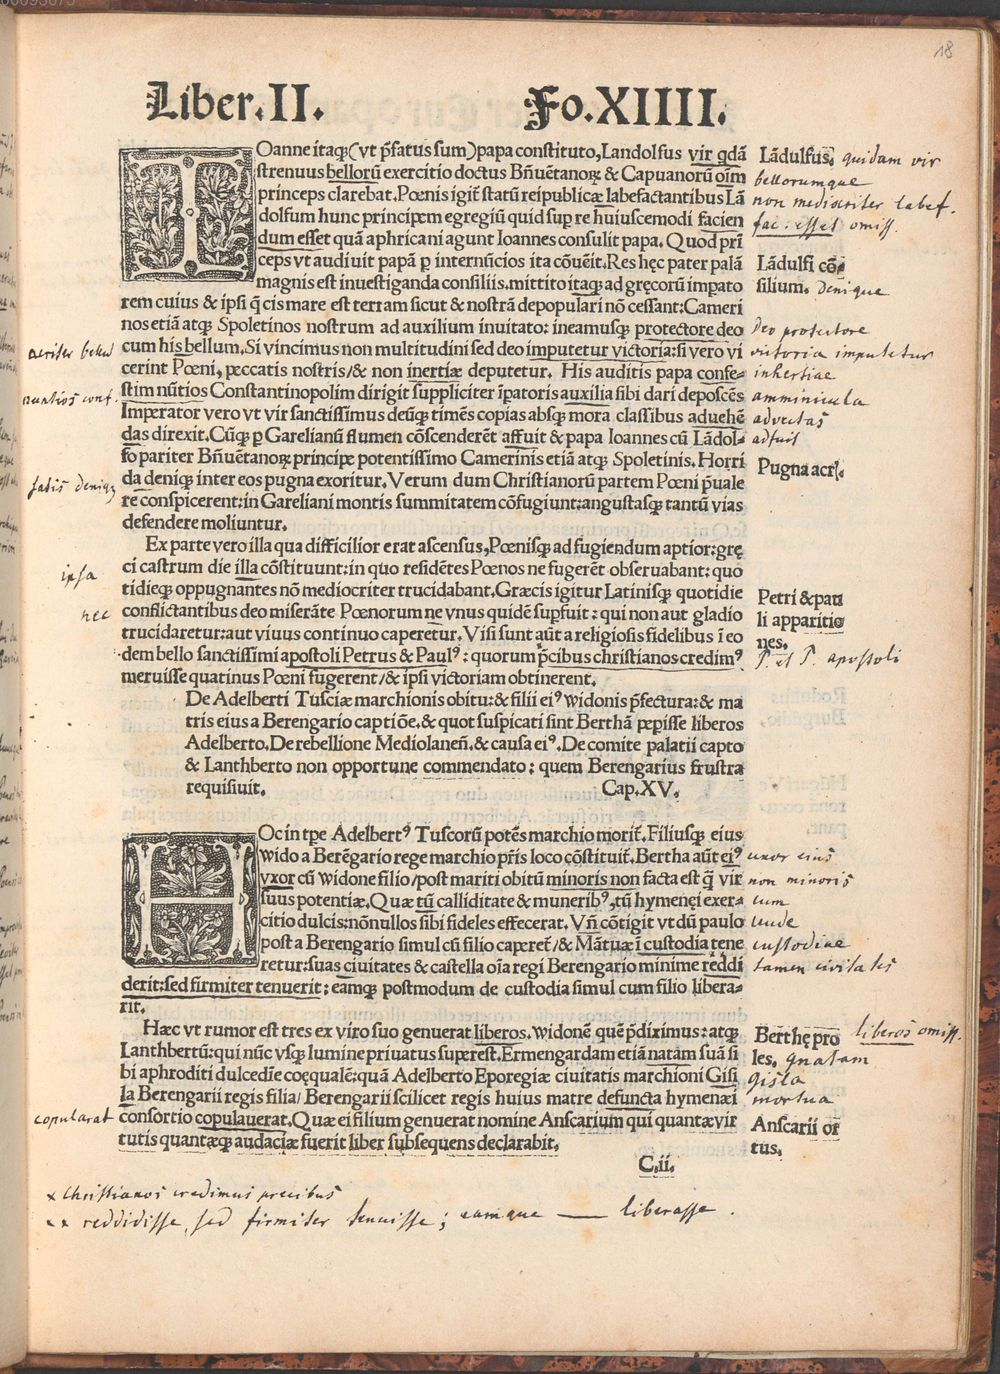 00093075
18
Liber.II. Fo.XIIII.
IOanne itaqꝫ(vt p̄fatus sum)papa constituto,Landolfus vir qdã
strenuus bellorũ exercitio doctus Bñuẽtanoꝝ & Capuanorũ oĩm
princeps clarebat.Pœnis igiť statũ reipublicæ labefactantibus Lã
dolfum hunc principem egregiũ quid sup re huiuscemodi facien
dum esset quã aphricani agunt Ioannes consulit papa. Quod prĩ
ceps vt audiuit papã p internũcios ita cõuẽit.Res hęc pater palã
magnis est inuestiganda consiliis.mittito itaqꝫ ad gręcorũ impato
rem cuius & ipsi q̃ cis mare est terram sicut & nostrã depopulari nõ cessant:Cameri
nos etiã atqꝫ Spoletinos nostrum ad auxilium inuitato: ineamusqꝫ protectore deo
cum his bellum.Si vincimus non multitudini sed deo imputetur victoria:si vero vi
cerint Pœni, peccatis nostris/& non inertiæ deputetur. His auditis papa confe-
stim nũtios Constantinopolim dirigit suppliciter ĩpatoris auxilia sibi dari deposcẽs
Imperator vero vt vir sanctissimus deũqꝫ timẽs copias absqꝫ mora classibus aduehẽ
das direxit.Cũqꝫ p Garelianũ flumen cõscenderẽt affuit & papa Ioannes cũ Lãdol-
fo pariter Bñuẽtanoꝝ principe potentissimo Camerinis etiã atqꝫ Spoletinis. Horri
da deniqꝫ inter eos pugna exoritur. Verum dum Christianorũ partem Pœni p̄uale
re conspicerent:in Gareliani montis summitatem cõfugiunt:angustasqꝫ tantũ vias
defendere moliuntur.
Ex parte vero illa qua difficilior erat ascensus,Pœnisqꝫ ad fugiendum aptior:grę
ci castrum die illa cõstituunt:in quo residẽtes Pœnos ne fugerẽt obseruabant: quo
tidieqꝫ oppugnantes nõ mediocriter trucidabant.Græcis igitur Latinisqꝫ quotidie
conflictantibus deo miserãte Pœnorum ne vnus quidẽ supfuit: qui non aut gladio
trucidaretur:aut viuus continuo caperetur. Visi sunt aũt a religiosis fidelibus ĩ eo
dem bello sanctissimi apostoli Petrus & Paulꝰ: quorum p̄cibus christianos credimꝰ
meruisse quatinus Pœni fugerent/& ipsi victoriam obtinerent.
De Adelberti Tusciæ marchionis obitu:& filii eiꝰ widonis p̄fectura:& ma
tris eius a Berengario captiõe.& quot suspicati sint Berthã pepisse liberos
Adelberto.De rebellione Mediolaneñ.& causa eiꝰ.De comite palatii capto
& Lanthberto non opportune commendato: quem Berengarius frustra
requisiuit. Cap.XV.
HOc in tpe Adelbertꝰ Tuscorũ potẽs marchio moriť.Filiusqꝫ eius
wido a Berẽgario rege marchio p̃ris loco cõstituiť.Bertha aũt eiꝰ
vxor cũ widone filio/post mariti obitũ minoris non facta est q̃ vir
suus potentiæ.Quæ tũ calliditate & muneribꝰ,tũ hymenęi exer-
citio dulcis:nõnullos sibi fideles effecerat. Vñ cõtigit vt dũ paulo
post a Berengario simul cũ filio capereť/& Mãtuæ ĩ custodia tene
retur:suas ciuitates & castella oĩa regi Berengario minime reddi
derit:sed firmiter tenuerit: eamqꝫ postmodum de custodia simul cum filio libera-
rit.
Hæc vt rumor est tres ex viro suo genuerat liberos. widonẽ quẽ p̄diximus: atqꝫ
Lanthbertũ:qui nũc vsqꝫ lumine priuatus superest.Ermengardam etiã natam suã si
bi aphroditi dulcedĩe coęqualẽ:quã Adelberto Eporegiæ ciuitatis marchioni Gisi
la Berengarii regis filia/ Berengarii scilicet regis huius matre defuncta hymenæi
consortio copulauerat.Quæ ei filium genuerat nomine Anscarium qui quantæ vir
tutis quantæqꝫ audaciæ fuerit liber subsequens declarabit.
C.ii.
Lãdulfus. quidam vir
bellorumque
non mediocriter labef.
fac. esset omiss.
Lãdulfi cõ-
silium. denique
Deo protectore
victoria imputetur
inhertiae
amminicula
advectas
adfuit
Pugna acris.
Petri & pau
li apparitio
nes.
P. et P. apostoli
uxor eius
non minoris
cum
unde
custodiae
tamen civitates
Berthę pro liberos omiss.
les. gnatam
gisla
mortua
Anscarii or
tus.
acriter bellum
nuntios conf.
satis deniqꝫ
ipsa
nec
copularat
x Christianos credimus precibus
x x reddidisse, sed firmiter tenuisse; eamque — liberasse.